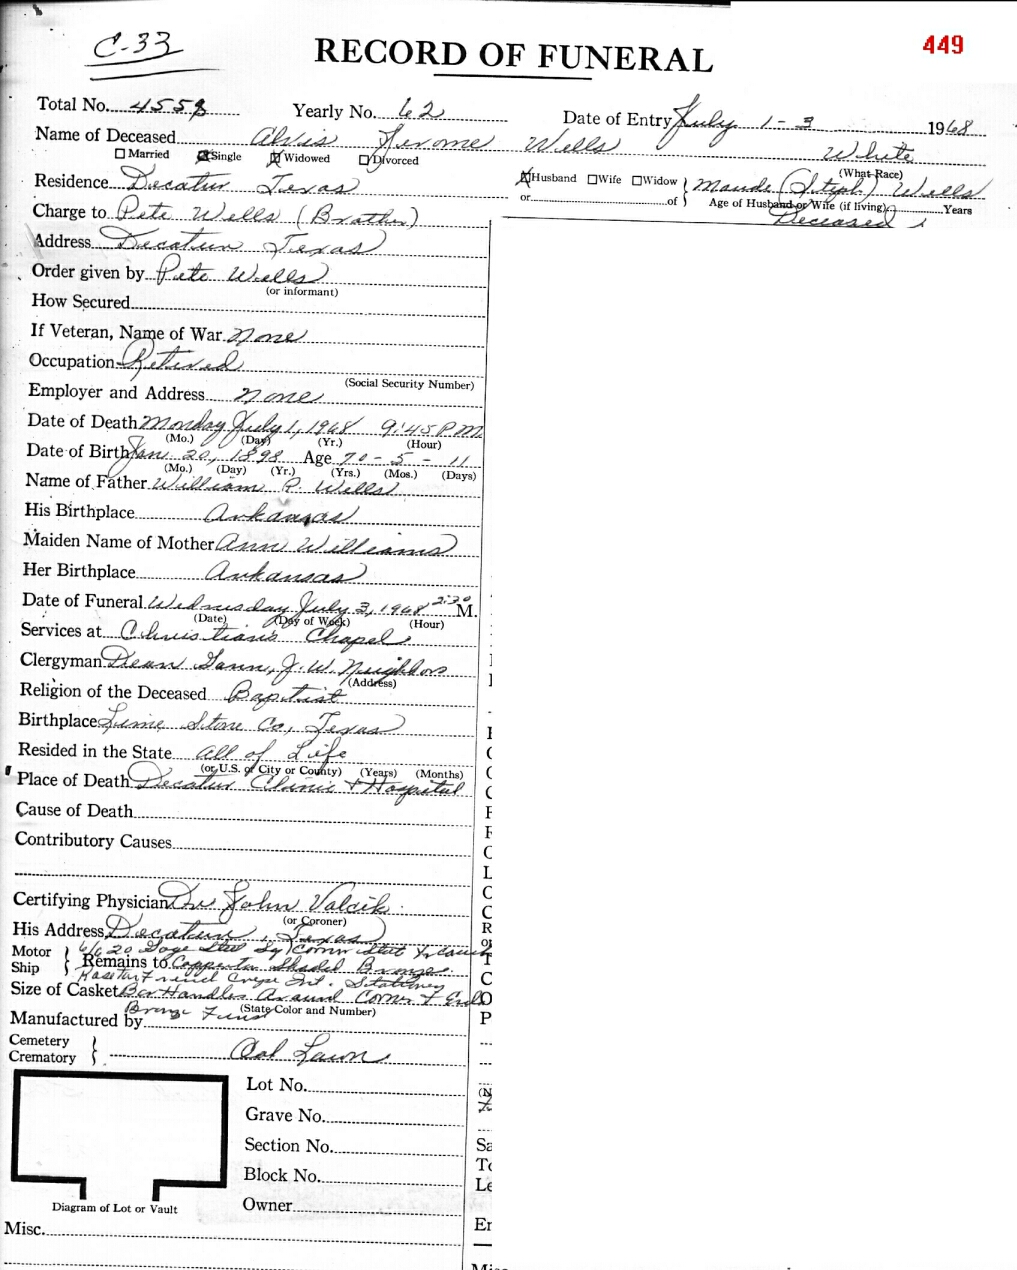 C-33
449
RECORD OF FUNERAL
Total No. 4558 Yearly No. 62 Date of Entry July 1-3 1968
Name of Deceased Alvis Jerome Wells White
☐ Married ☒ Single ☒ Widowed ☐ Divorced (What Race)
Residence Decatur Texas ☒ Husband ☐ Wife ☐ Widow } Maude (Stph) Wells
or of Age of Husband or Wife (if living) Years
Deceased
Charge to Pete Wells (Brother)
Address Decatur Texas
Order given by Pete Wells
(or informant)
How Secured
If Veteran, Name of War None
Occupation Retired
(Social Security Number)
Employer and Address None
Date of Death Monday July 1, 1968 9:45 P M
(Mo.) (Day) (Yr.) (Hour)
Date of Birth Jan. 20, 1898 Age 70 - 5 - 11
(Mo.) (Day) (Yr.) (Yrs.) (Mos.) (Days)
Name of Father William P. Wells
His Birthplace Arkansas
Maiden Name of Mother Ann Williams
Her Birthplace Arkansas
Date of Funeral Wednesday July 3, 1968 2:30 M.
(Date) (Day of Week) (Hour)
Services at Christians Chapel
Clergyman Dean Gann, J. W. Neighbors
(Address)
Religion of the Deceased Baptist
Birthplace Lime Stone Co, Texas
Resided in the State All of Life
(or U.S. or City or County) (Years) (Months)
Place of Death Decatur Clinic + Hospital
Cause of Death
Contributory Causes
Certifying Physician Dr. John Valcik
(or Coroner)
His Address Decatur, Texas
Motor 6/6 20 Gage Sq Corner
Ship } Remains to Copperton Shaded Bronze
Crepe Int.
Size of Casket Bar Handles Around Corner + End
Bronze (State Color and Number)
Manufactured by
Cemetery
Crematory } Oak Lawn
Lot No.
Grave No.
Section No.
Block No.
Diagram of Lot or Vault
Owner
Misc.